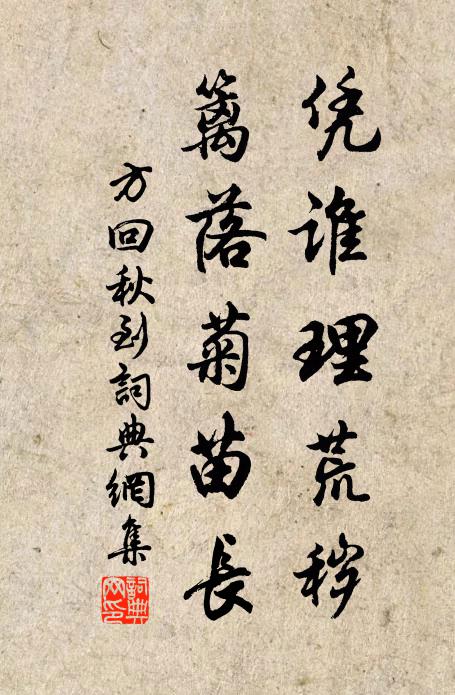 凭谁理荒秽
篱落菊苗長
方回秋到詞典網集
詞典